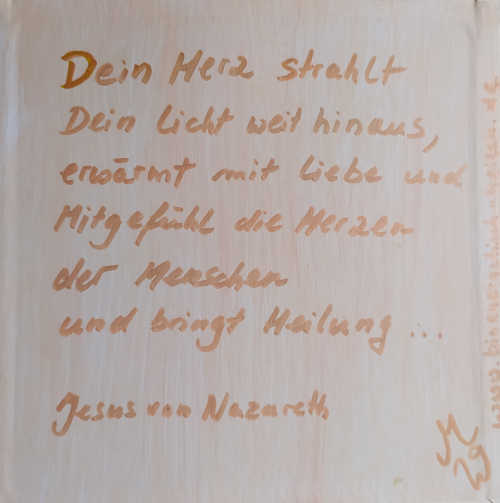 Dein Herz strahlt
Dein Licht weit hinaus,
erwärmt mit Liebe und
Mitgefühl die Herzen
der Menschen
und bringt Heilung ...
Jesus von Nazareth